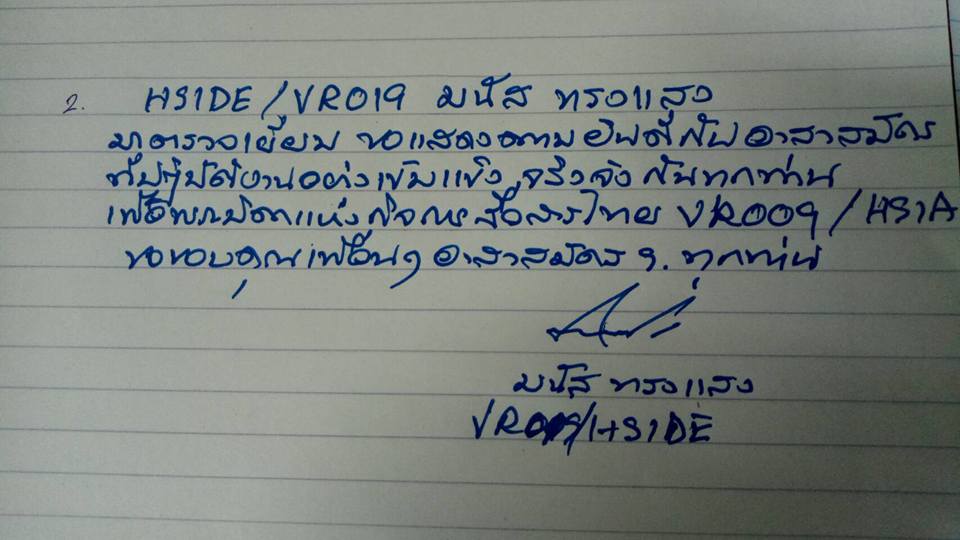 2. HS1DE/VR019 มนัส ทรงแสง
มาตรวจเยี่ยม ขอแสดงความยินดีกับอาสาสมัคร
ที่ปฏิบัติงานอย่างเข้มแข็ง จริงจัง กันทุกท่าน
เพื่อพระบิดาแห่งกิจการสื่อสารไทย VR009/HS1A
ขอขอบคุณเพื่อนๆ อาสาสมัคร ว. ทุกท่าน
มนัส ทรงแสง
VR019/HS1DE